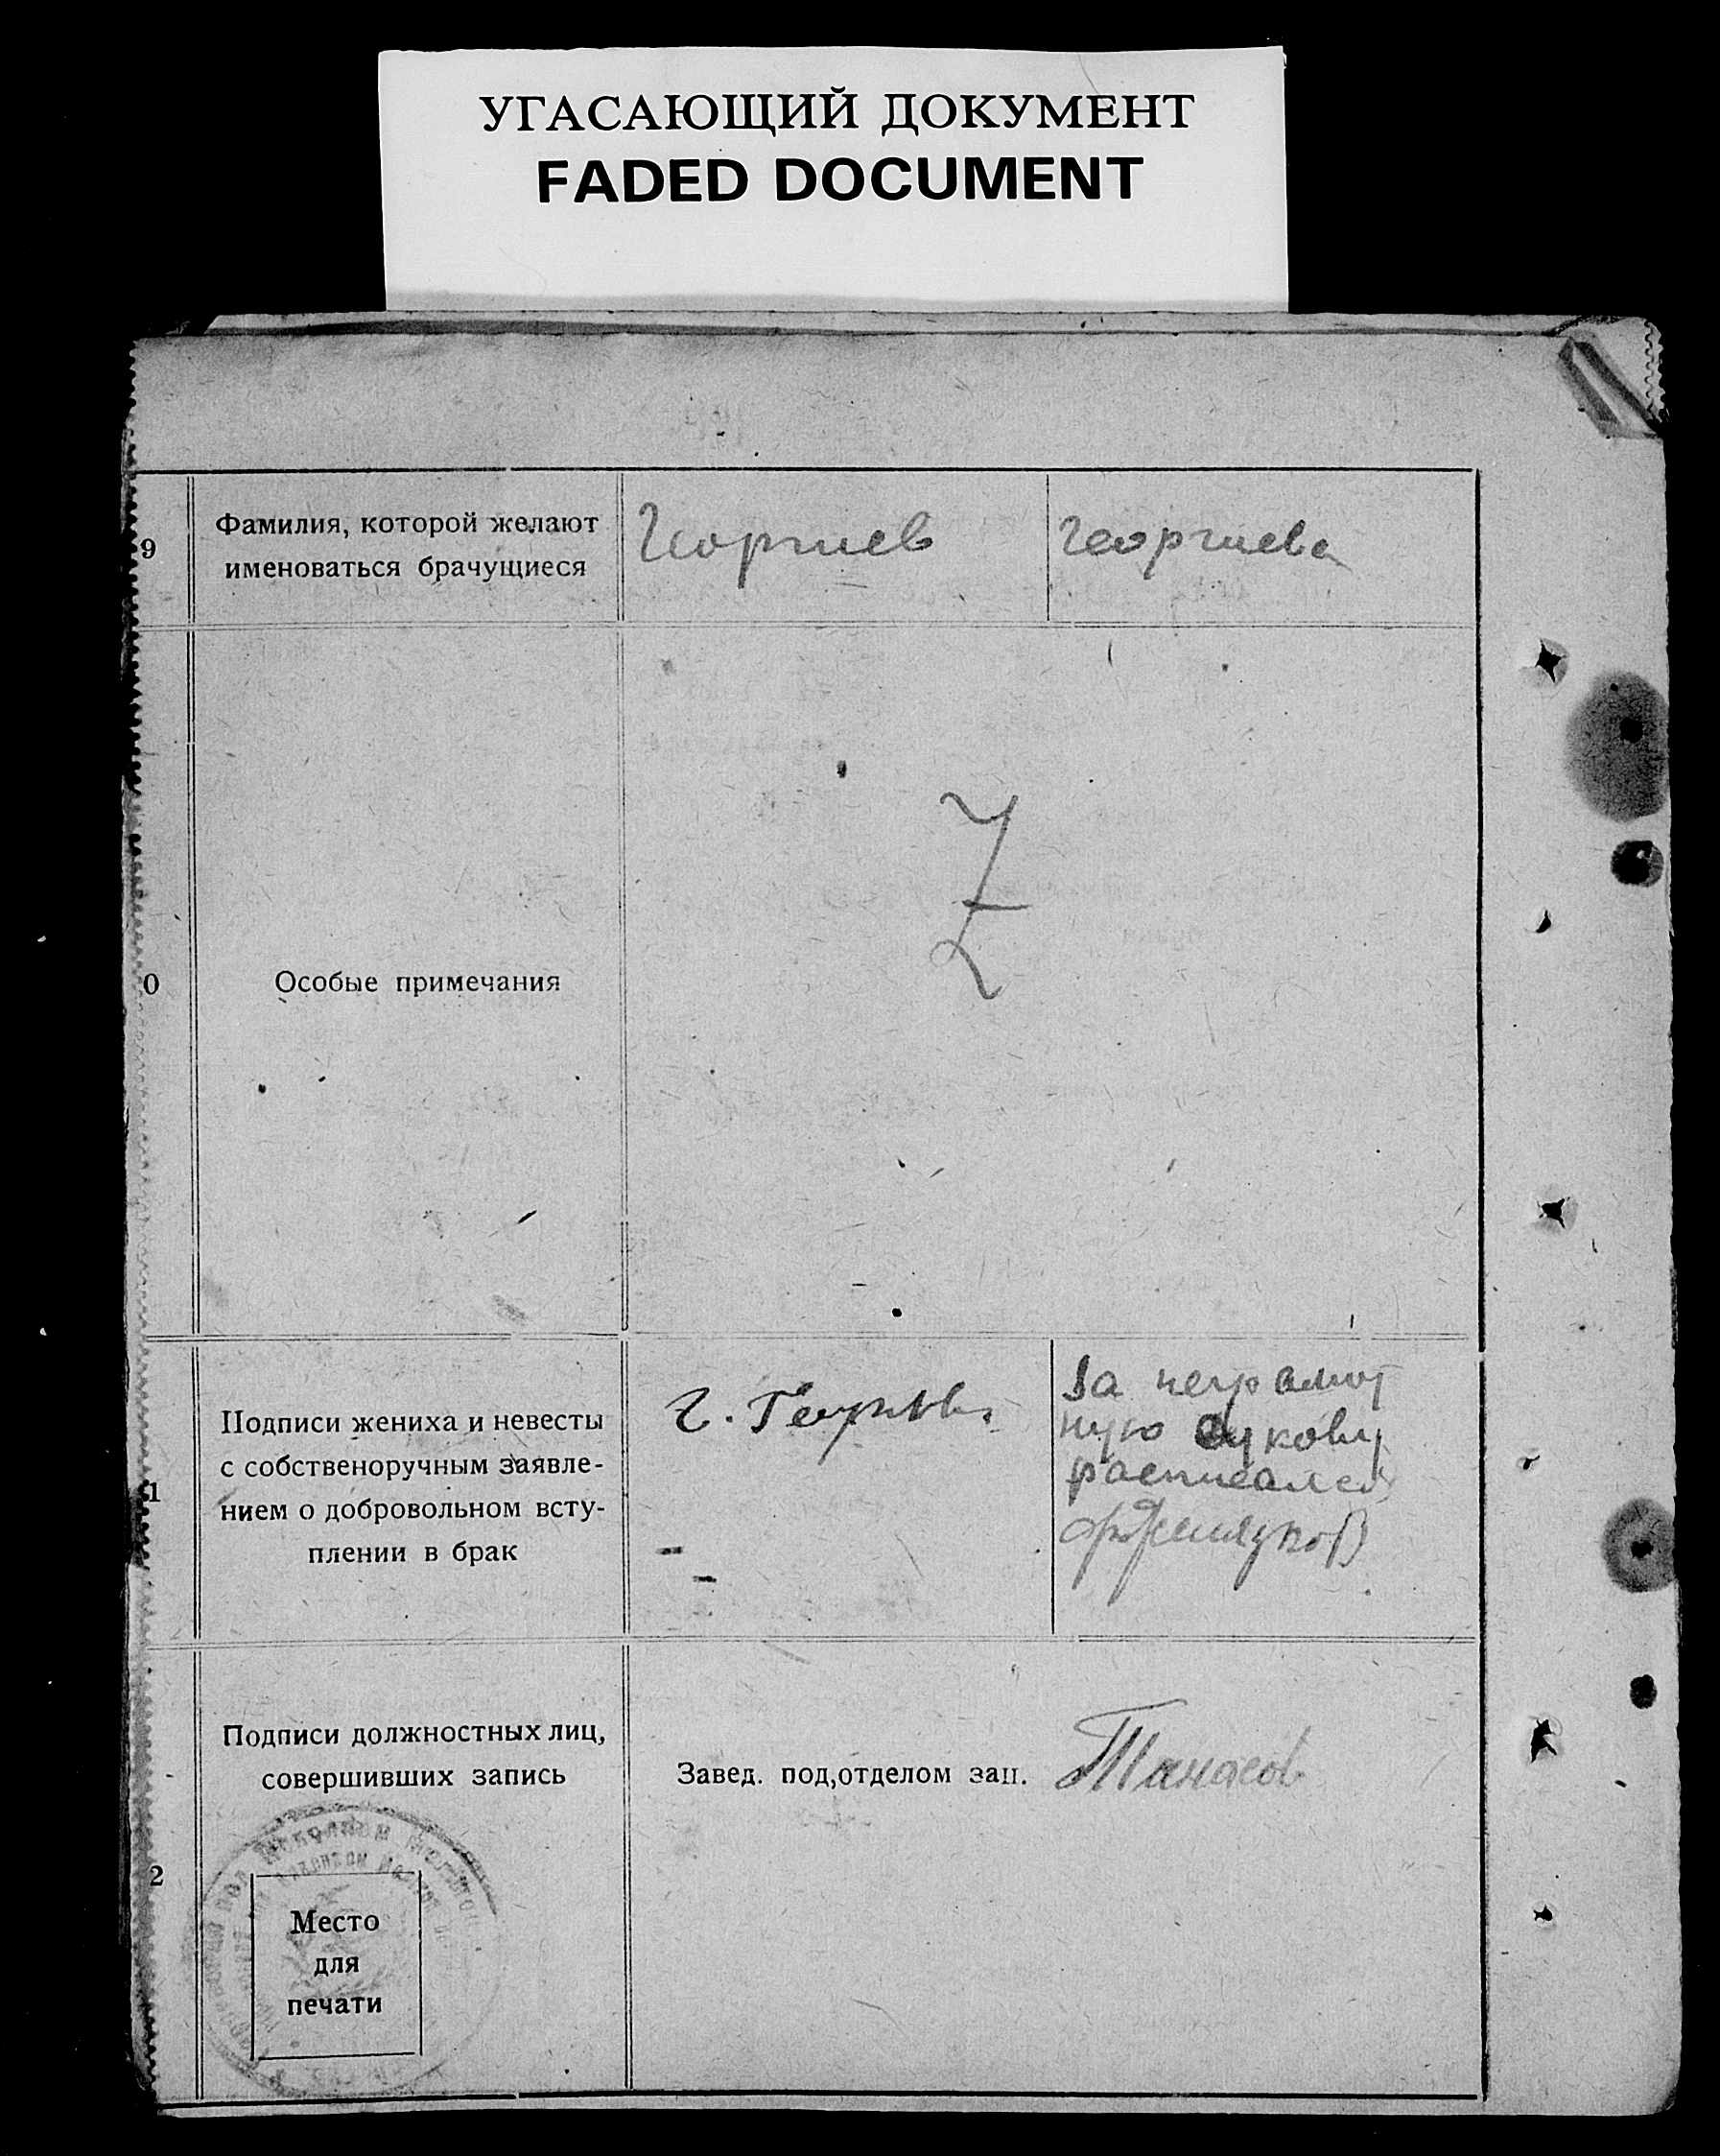 УГАСАЮЩИЙ ДОКУМЕНТ
FADED DOCUMENT
9
Фамилия, которой желают
именоваться брачущиеся
Георгиев
Георгиева
0
Особые примечания
Z
1
Подписи жениха и невесты
с собственоручным заявле-
нием о добровольном всту-
плении в брак
Г.
За неграмот
ную
расписался
2
Подписи должностных лиц,
совершивших запись
Завед. под,отделом зап.
Танасов
Место
для
печати